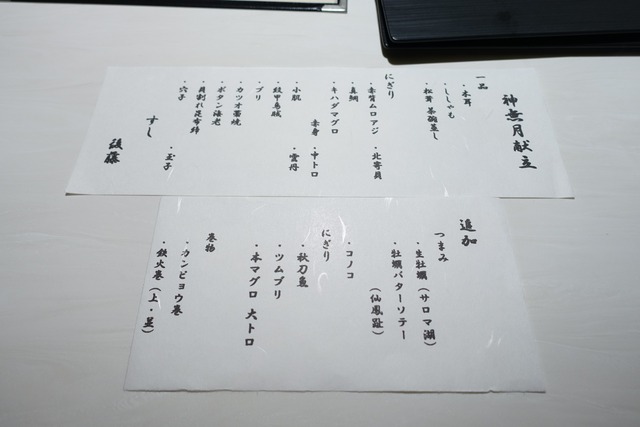 神無月献立
一品
・木耳
・ししゃも
・松茸 茶碗蒸し
にぎり
・赤背ムロアジ ・北寄貝
・真鯛
・キハダマグロ
赤身 ・中トロ
・小肌 ・雲丹
・紋甲烏賊
・ブリ
・カツオ藁焼
・ボタン海老
・貝割れ昆布締
・穴子 ・玉子
すし
後藤
追加
つまみ
・生牡蠣(サロマ湖)
・牡蠣バターソテー
(仙鳳趾)
・コノコ
にぎり
・秋刀魚
・ツムブリ
・本マグロ 大トロ
巻物
・カンピョウ巻
・鉄火巻(上・並)